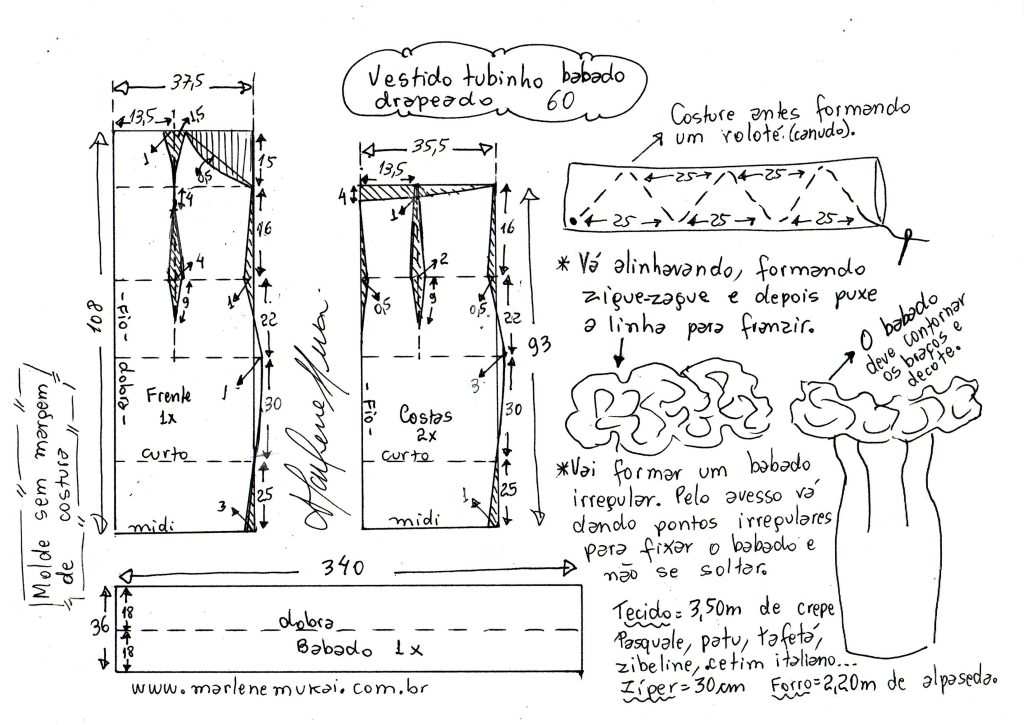 Vestido tubinho babado
drapeado 60
37,5
13,5
1,5
1
0,5
15
4
16
4
9
1
22
108
-Fio- dobra-
Frente
1x
1
30
curto
25
3
midi
35,5
13,5
4
1
16
2
9
0,5
0,5
22
93
3
-Fio-
Costas
2x
30
curto
1
25
midi
Marlene Mukai
"Molde sem margem
de costura"
Costure antes formando
um roloté.(canudo).
25 25
25 25 25
* Vá alinhavando, formando
zigue-zague e depois puxe
a linha para franzir.
O babado
deve contornar
os braços e
decote.
*Vai formar um babado
irregular. Pelo avesso vá
dando pontos irregulares
para fixar o babado e
não se soltar.
Tecido=3,50m de crepe
Pasquale, patu, tafetá,
zibeline, cetim italiano...
Zíper=30cm Forro=2,20m de alpaseda.
340
36
18
18
dobra
Babado 1x
www.marlenemukai.com.br